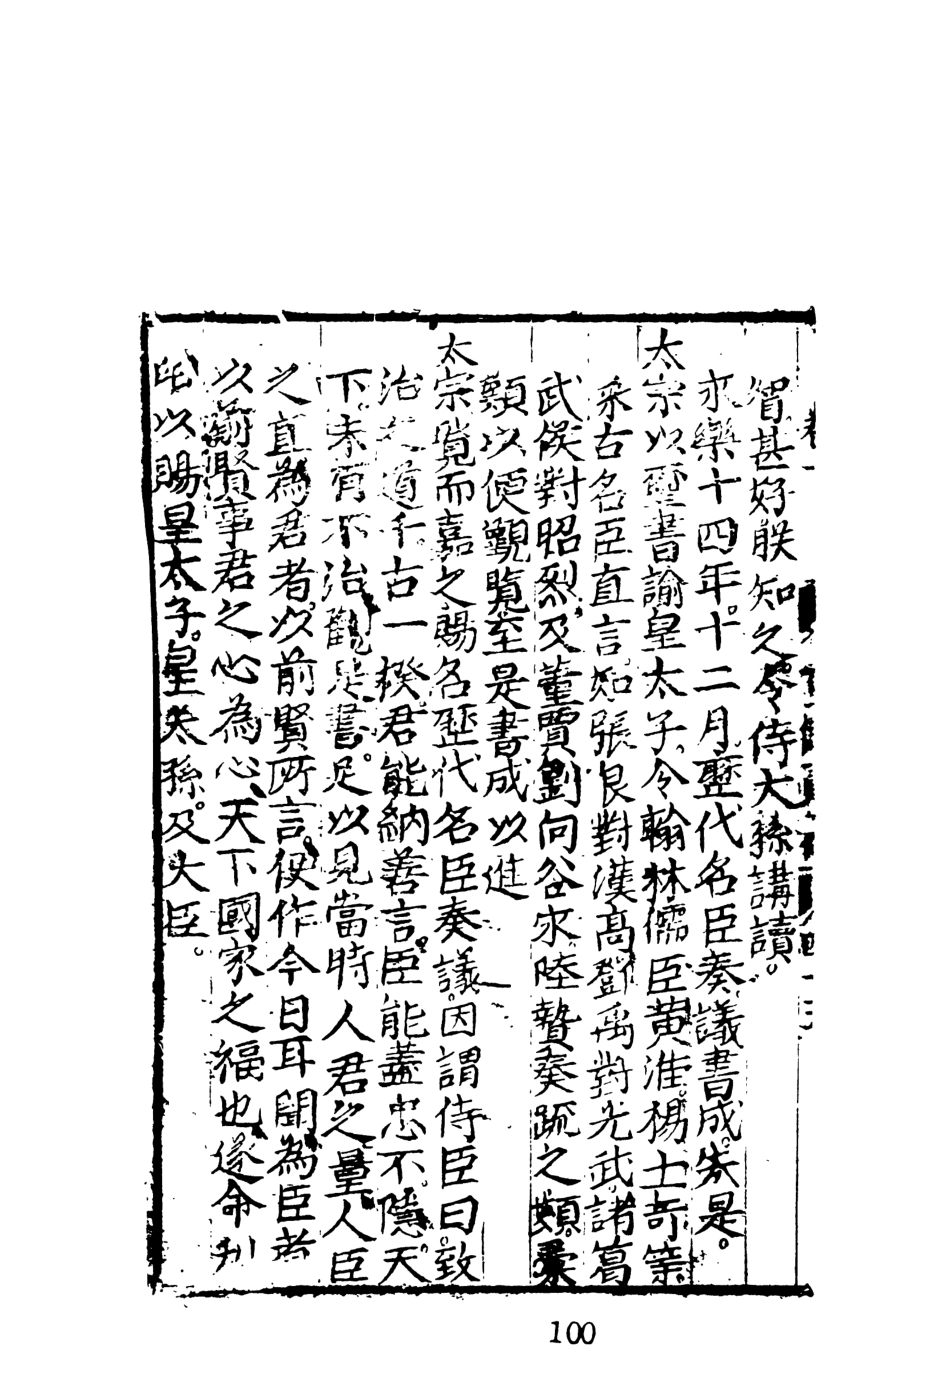 習甚好朕知之令侍太孫講讀。
永樂十四年。十二月歷代名臣奏議書成。先是。
太宗以璽書諭皇太子、令翰林儒臣黃淮楊士奇等
采古名臣直言。如張良對漢高鄧禹對光武諸葛
武侯對昭烈、及董賈劉向谷永陸贄奏疏之類。彙
類以便觀覽至是書成以進
太宗覽而嘉之賜名歷代名臣奏議。因謂侍臣曰致
治之道千古一揆。君能納善言。臣能盡忠不隱。天
下未有不治觀是書。足以見當時人君之量人臣
之直為君者。以前賢所言。便作今日耳聞為臣者
以前賢事君之心為心、天下國家之福也遂命刊
以賜皇太子。皇太孫。及大臣。
100